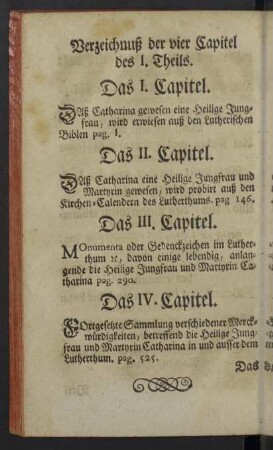 Verzeichnuß der vier Capitel
des I. Theils.
Das I. Capitel.
Daß Catharina gewesen eine Heilige Jung-
frau, wird erwiesen auß den Lutherischen
Biblen pag. 1.
Das II. Capitel.
Daß Catharina eine Heilige Jungfrau und
Martyrin gewesen, wird probirt auß den
Kirchen-Calendern des Lutherthums. pag 146.
Das III. Capitel.
Monumenta oder Gedenckzeichen im Luther-
thum ꝛc, davon einige lebendig, anlan-
gende die Heilige Jungfrau und Martyrin Ca-
tharina pag. 290.
Das IV. Capitel.
Fortgesetzte Sammlung verschiedener Merck-
würdigkeiten, betreffend die Heilige Jung-
frau und Martyrin Catharina in und ausser dem
Lutherthum. pag. 525.
Das